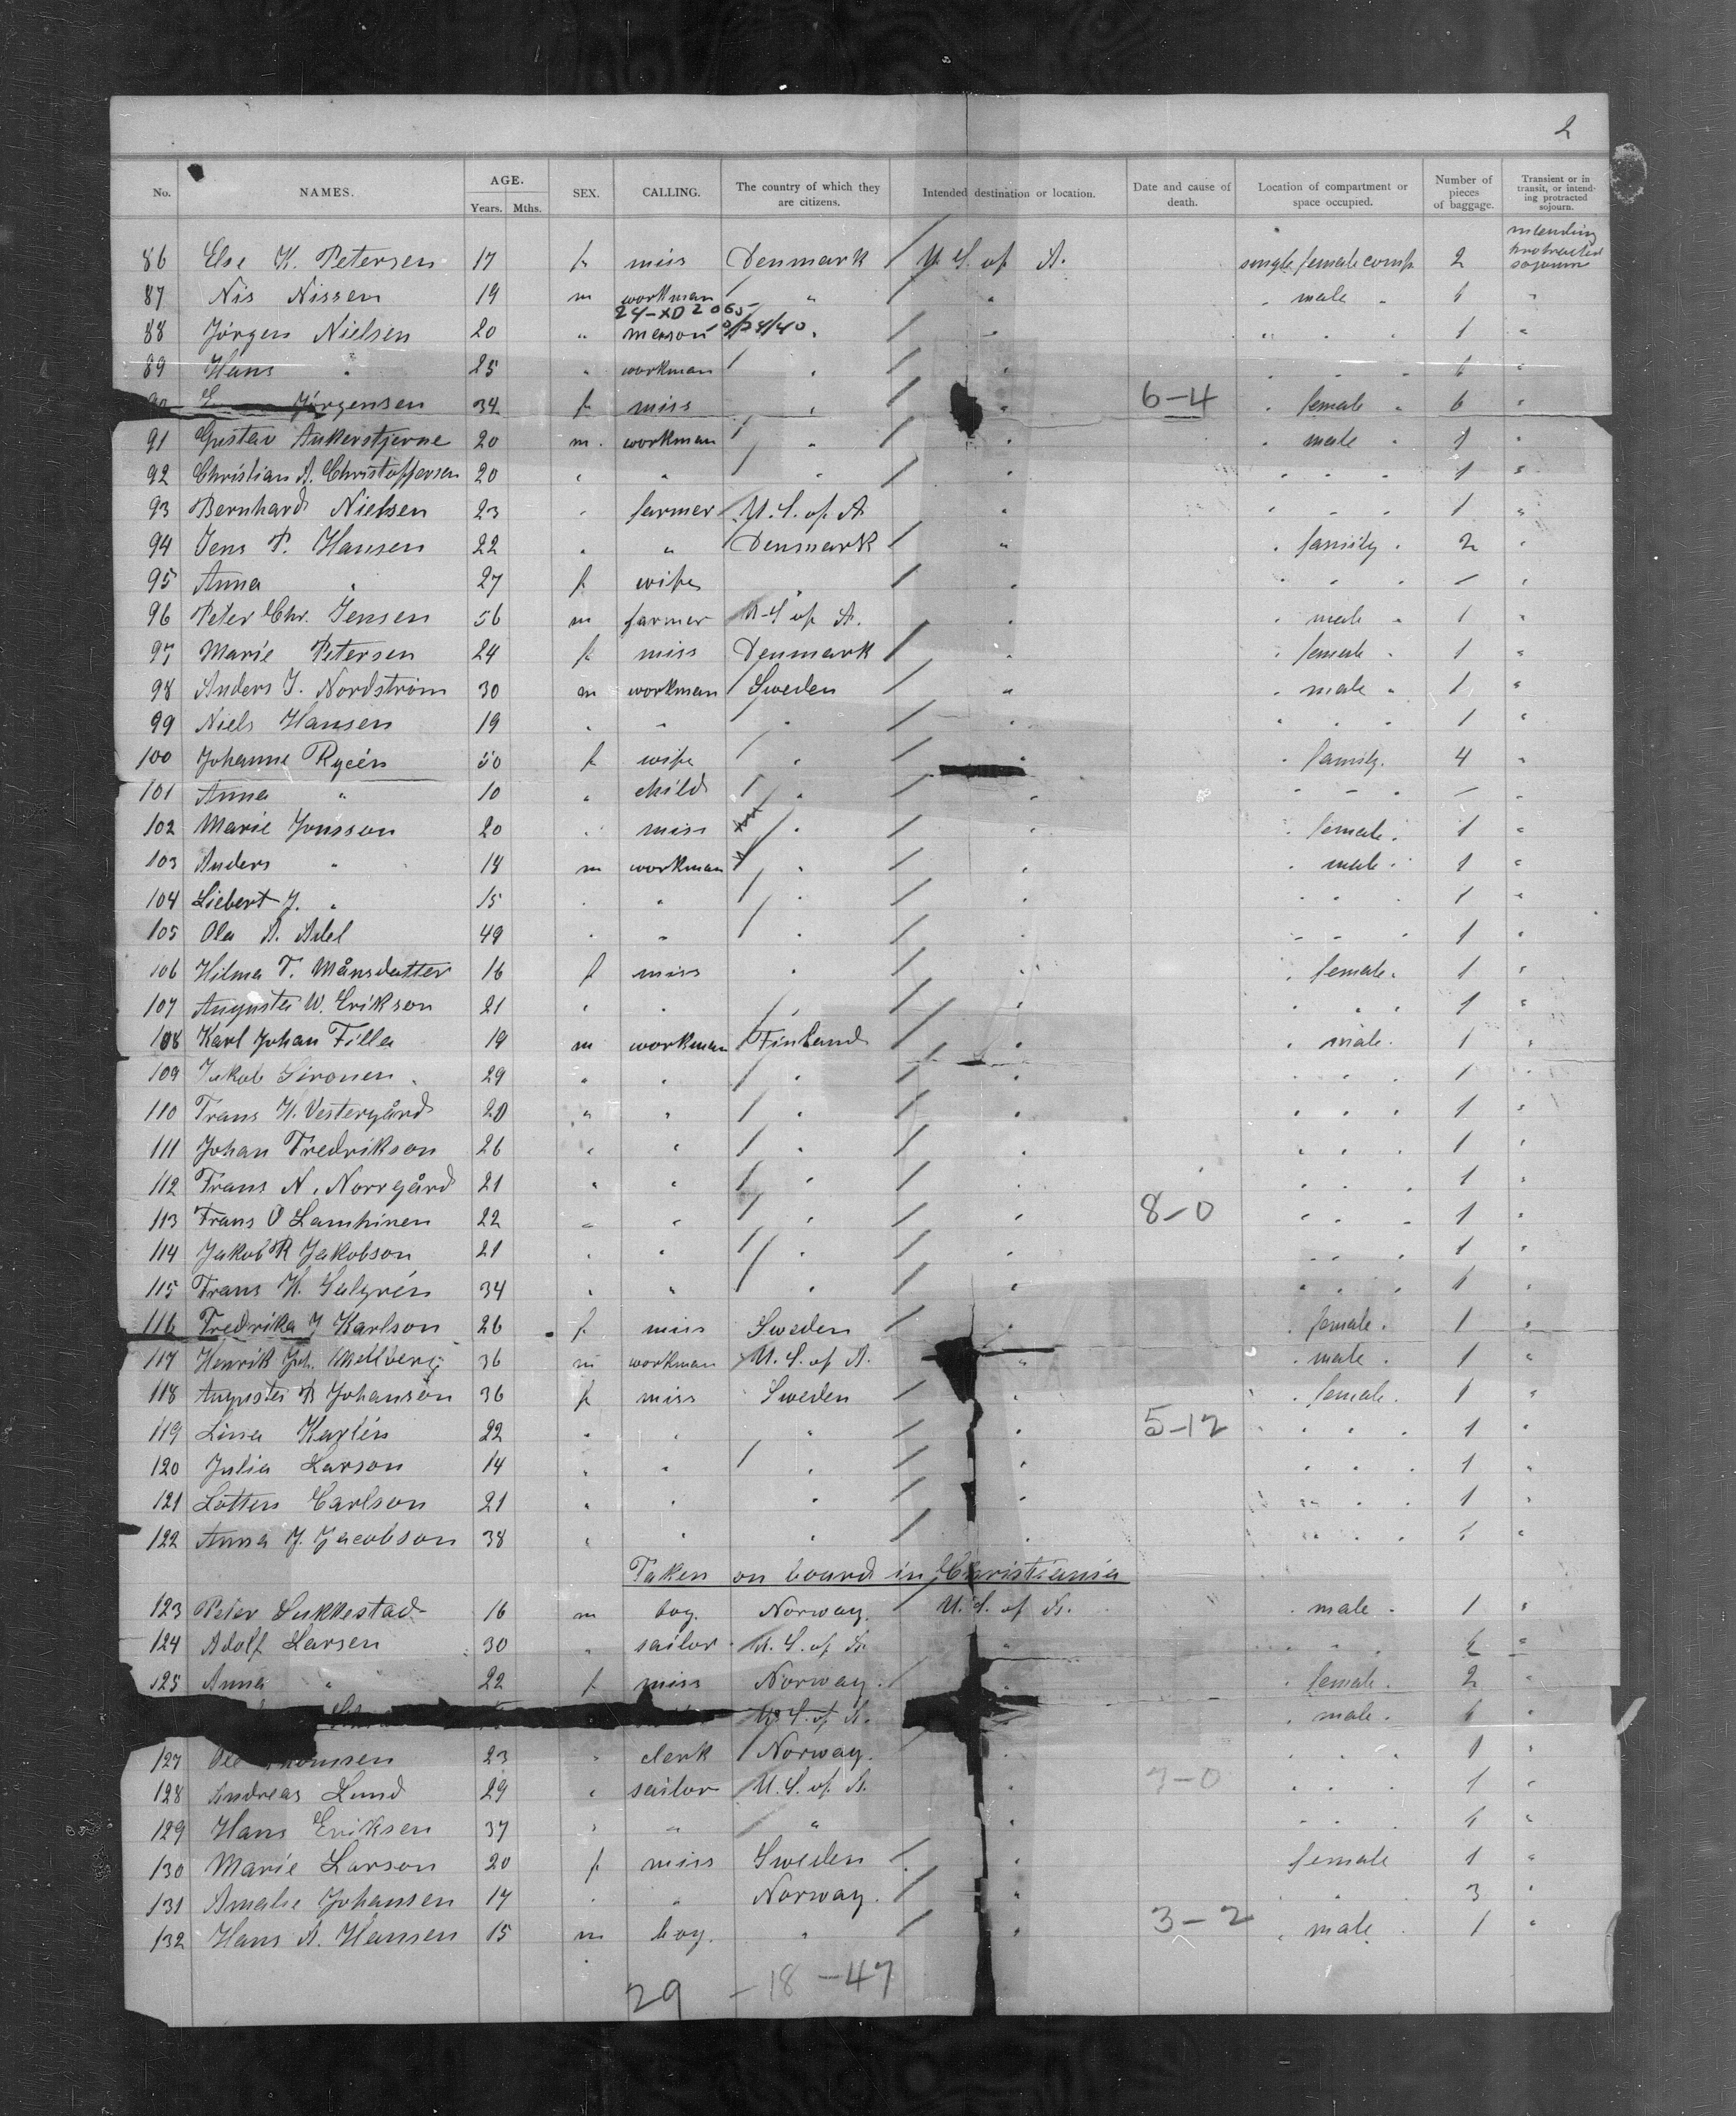 2
No. NAMES. AGE. Years. Mths. SEX. CALLING. The country of which they are citizens. Intended destination or location. Date and cause of death. Location of compartment or space occupied. Number of pieces of baggage. Transient or in transit, or intending protracted sojourn.
86 Else K. Petersen 17 f miss Denmark / U. S. of A. single female comp. 2 intending protracted sojourn
87 Nis Nissen 19 m workman / " / " " male " 1 "
24-XD 2065-
88 Jörgen Nielsen 20 " mason 9/24/40 " / " " " " 1 "
89 Hans " 25 " workman / " / " " " " 1 "
E Jörgensen 34 f miss / " / " 6-4 " female " 6 "
91 Gustav Ankerstjerne 20 m. workman / " / " " male " 1 "
92 Christian A. Christoffersen 20 " " / " / " " " " 1 "
93 Bernhard Nielsen 23 " farmer / U. S. of A " " " " 1 "
94 Jens P. Hansen 22 " " / Denmark / " " family " 2 "
95 Anna " 27 f wife " / " " " " - "
96 Peter Chr. Jensen 56 m farmer U-S of A. " " male " 1 "
97 Marie Petersen 24 f miss Denmark / " " female " 1 "
98 Anders J. Nordström 30 m workman / Sweden / " " male " 1 "
99 Niels Hansen 19 " " / " / " " " " 1 "
100 Johanne Rycén 50 f wife / " / " " family. 4 "
101 Anna " 10 " child / " / " " " " - "
102 Marie Jonsson 20 " miss / " / " " female " 1 "
103 Anders " 18 m workman / " / " " male " 1 "
104 Liebert J. " 15 " " / " / " " " " 1 "
105 Ola A. Adel 49 " " / " / " " " " 1 "
106 Hilma T. Månsdatter 16 f miss " / " " female " 1 "
107 Augusta W. Erikson 21 " " / " / " " " " 1 "
108 Karl Johan Filla 19 m workman / Finland / " " male " 1 "
109 Jakob Sironen 29 " " / " / " " " " 1 "
110 Frans H. Vestergård 20 " " / " / " " " " 1 "
111 Johan Fredrikson 26 " " / " / " " " " 1 "
112 Frans N. Norrgård 21 " " / " / " " " " 1 "
113 Frans O Lamhinen 22 " " / " / " 8-0 " " " 1 "
114 Jakob R Jakobson 21 " " / " / " " " " 1 "
115 Frans H. Salgrén 34 " " / " / " " " " 1 "
116 Fredrika J Karlson 26 f miss Sweden / " " female " 1 "
117 Henrik Joh. Mellberg 36 m workman U. S. of A. " " male " 1 "
118 Augusta B Johanson 36 f miss Sweden / " " female " 1 "
119 Lina Karlén 22 " " " / " 5-12 " " " 1 "
120 Julia Larson 14 " " / " / " " " " 1 "
121 Lotten Carlson 21 " " " / " " " " 1 "
122 Anna J. Jacobson 38 " " " / " " " " 1 "
Taken on board in Christiania
123 Peter Lukkestad 16 m boy. Norway. / U. S. of A. " male " 1 "
124 Adolf Larsen 30 " sailor U. S. of A. " " " " 1 "
125 Anna " 22 f miss Norway. / " " female " 2 "
U. S. of A. " " male " 1 "
127 Ole 23 " clerk / Norway. / " " " " 1 "
128 Andreas Lund 29 " sailor / U. S. of A. " 7-0 " " " 1 "
129 Hans Eriksen 37 " " / " " " " " 1 "
130 Marie Larson 20 f miss Sweden / " female 1 "
131 Amalie Johansen 17 " " Norway. / " " " " 3 "
132 Hans A. Hansen 15 m boy. " / " 3-2 " male " 1 "
29 - 18 - 47